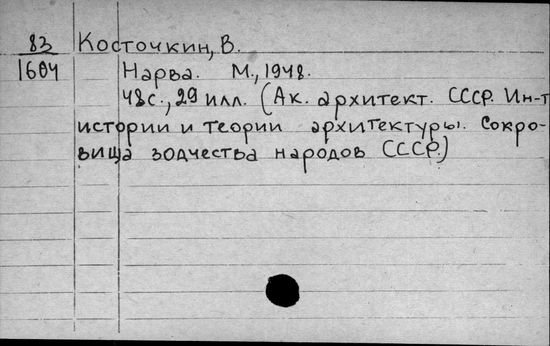 83 Косточкин, В.
1604 Нарва. М., 1948.
48с., 29 илл. (Ак. архитект. СССР. Ин-т
истории и теории архитектуры. Сокро-
вища зодчества народов СССР.)